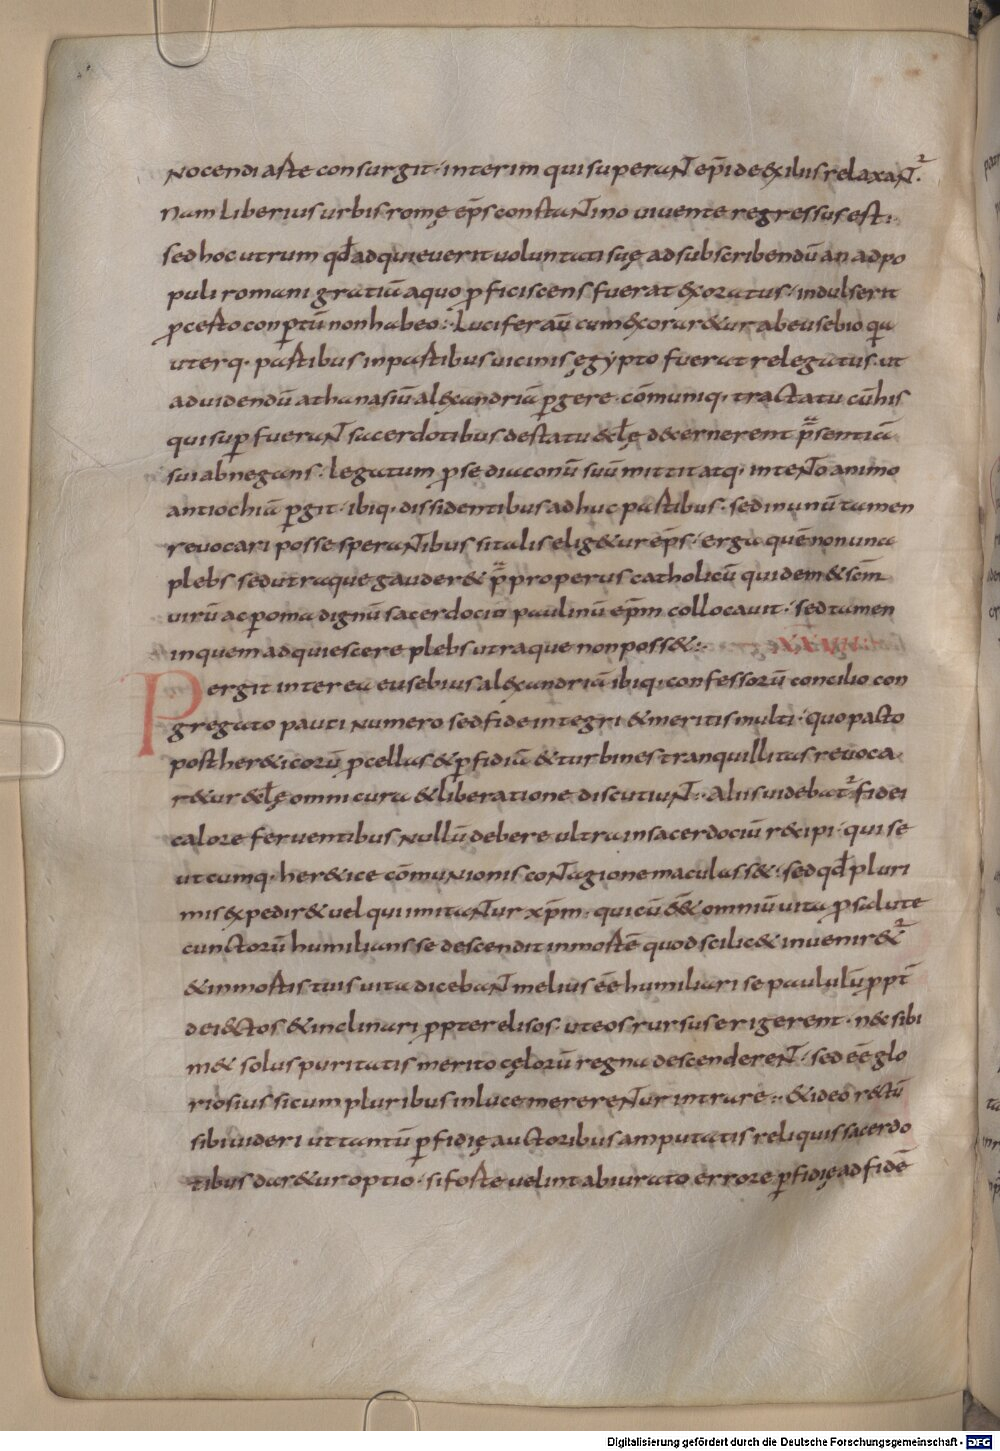 nocendi arte consurgit · interim qui superaNT ep̅i de exiliis relaxaNT².
Nam liberius urbis romę ep̅s constaNTino vivente regressus est:.
sed hoc utrum qđ adquieverit voluntati suę ad subscribendū an ad po
puli romani gratiā a quo ꝓficiscens fuerat exoratus · indulserit
ꝓ certo conꝑtū non habeo:· Lucifer aū cum exoraretur ab eusebio qia
uterq· partibus in partibus vicinis ęgypto fuerat relegatus · ut
ad videndū athanasiū alexandriā ꝑgere · cōmuniq· tractatu cū his
qui suꝑfueraNT sacerdotibus de statu eccłę decernerent p̄sentiā
sui abnegans · legatum ꝓ se diaconū suū mittit atq· inteNTo animo
antiochiā ꝑgit · ibiq· dissidentibus adhuc partibus · sed in unū tamen
revocari posse speraNTibus si talis eligetur ep̅s · erga quē non una
plebs sed utraque gauderet p̄properus catholicū quidem & sc̄m
virū ac ꝑ oma dignū sacerdocio paulinū ep̅m collocavit · sed tamen
in quem adquiescere plebs utraque non posset:·
Pergit interea eusebius alexandriā ibiq· confessorū concilio con
gregato pauci numero sed fide integri & meritis multi · quo pacto
post hereticorū ꝓcellas & ꝑfidiā & turbines tranquillitas revoca
retur eccłę omni cura & liberatione discutiuNT· Aliis videbat² fidei
calore ferventibus nullū debere ultra in sacerdociū recipi · qui se
utcumq· heretice cōmunionis coNTagione maculasset· sed qđ pluri
mis expediret vel qui imitaNTur xp̅m · qui cū eēt omniū vita ꝓ salute
cunctorū humilians se descendit in mortē quod scilicet inveniret²
& in mortis tuis vita dicebaNT melius eē humiliari se paululū ꝓpt̄
deiectos & inclinari ꝓpter elisos · ut eos rursus erigerent · nec sibi
met solus puritatis merito cęlorū regna descendereNT · sed eē glo
riosius si cum pluribus in luce merereNTur intrare:· & ideo rectū
sibi videri ut tantū ꝑfidię auctoribus amputatis reliquis sacerdo
tibus daretur optio · si forte velint abiurato errore ꝑfidię ad fidē
Digitalisierung gefördert durch die Deutsche Forschungsgemeinschaft - DFG